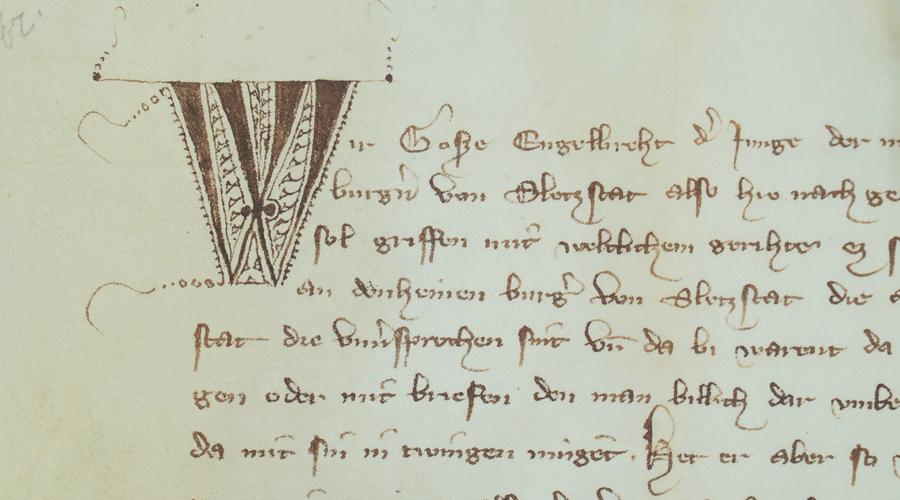 Wir Goſze Engelbreht d' Junge der
burg' von Sletzſtat alſo hie nach ge
ſol griffen mit weltlichem gerihte ez
an denheinen burg' von Sletzſtat die
ſtat die vnu'ſprochen ſint vn̄ da bi warent da
gen oder mit briefen den man billich dar vmbe
da mit ſin in twingen mūgent. Het er aber ſo